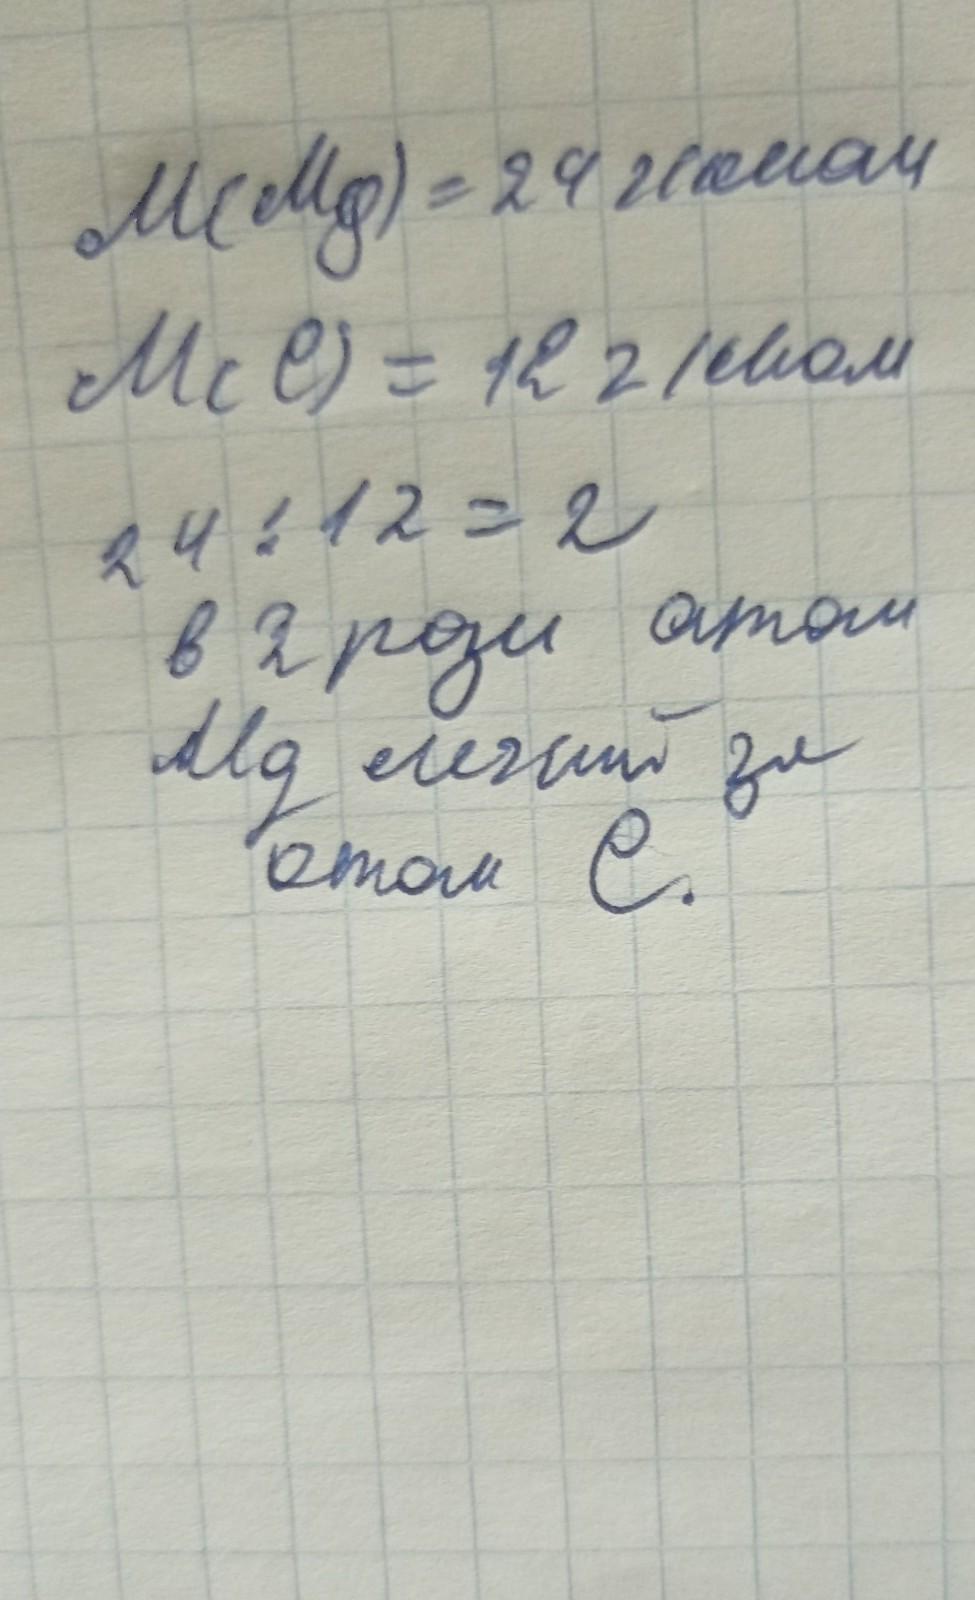 M(Mg) = 24 г/моль
M(C) = 12 г/моль
24 : 12 = 2
в 2 рази атом
Mg легший за
атом C.